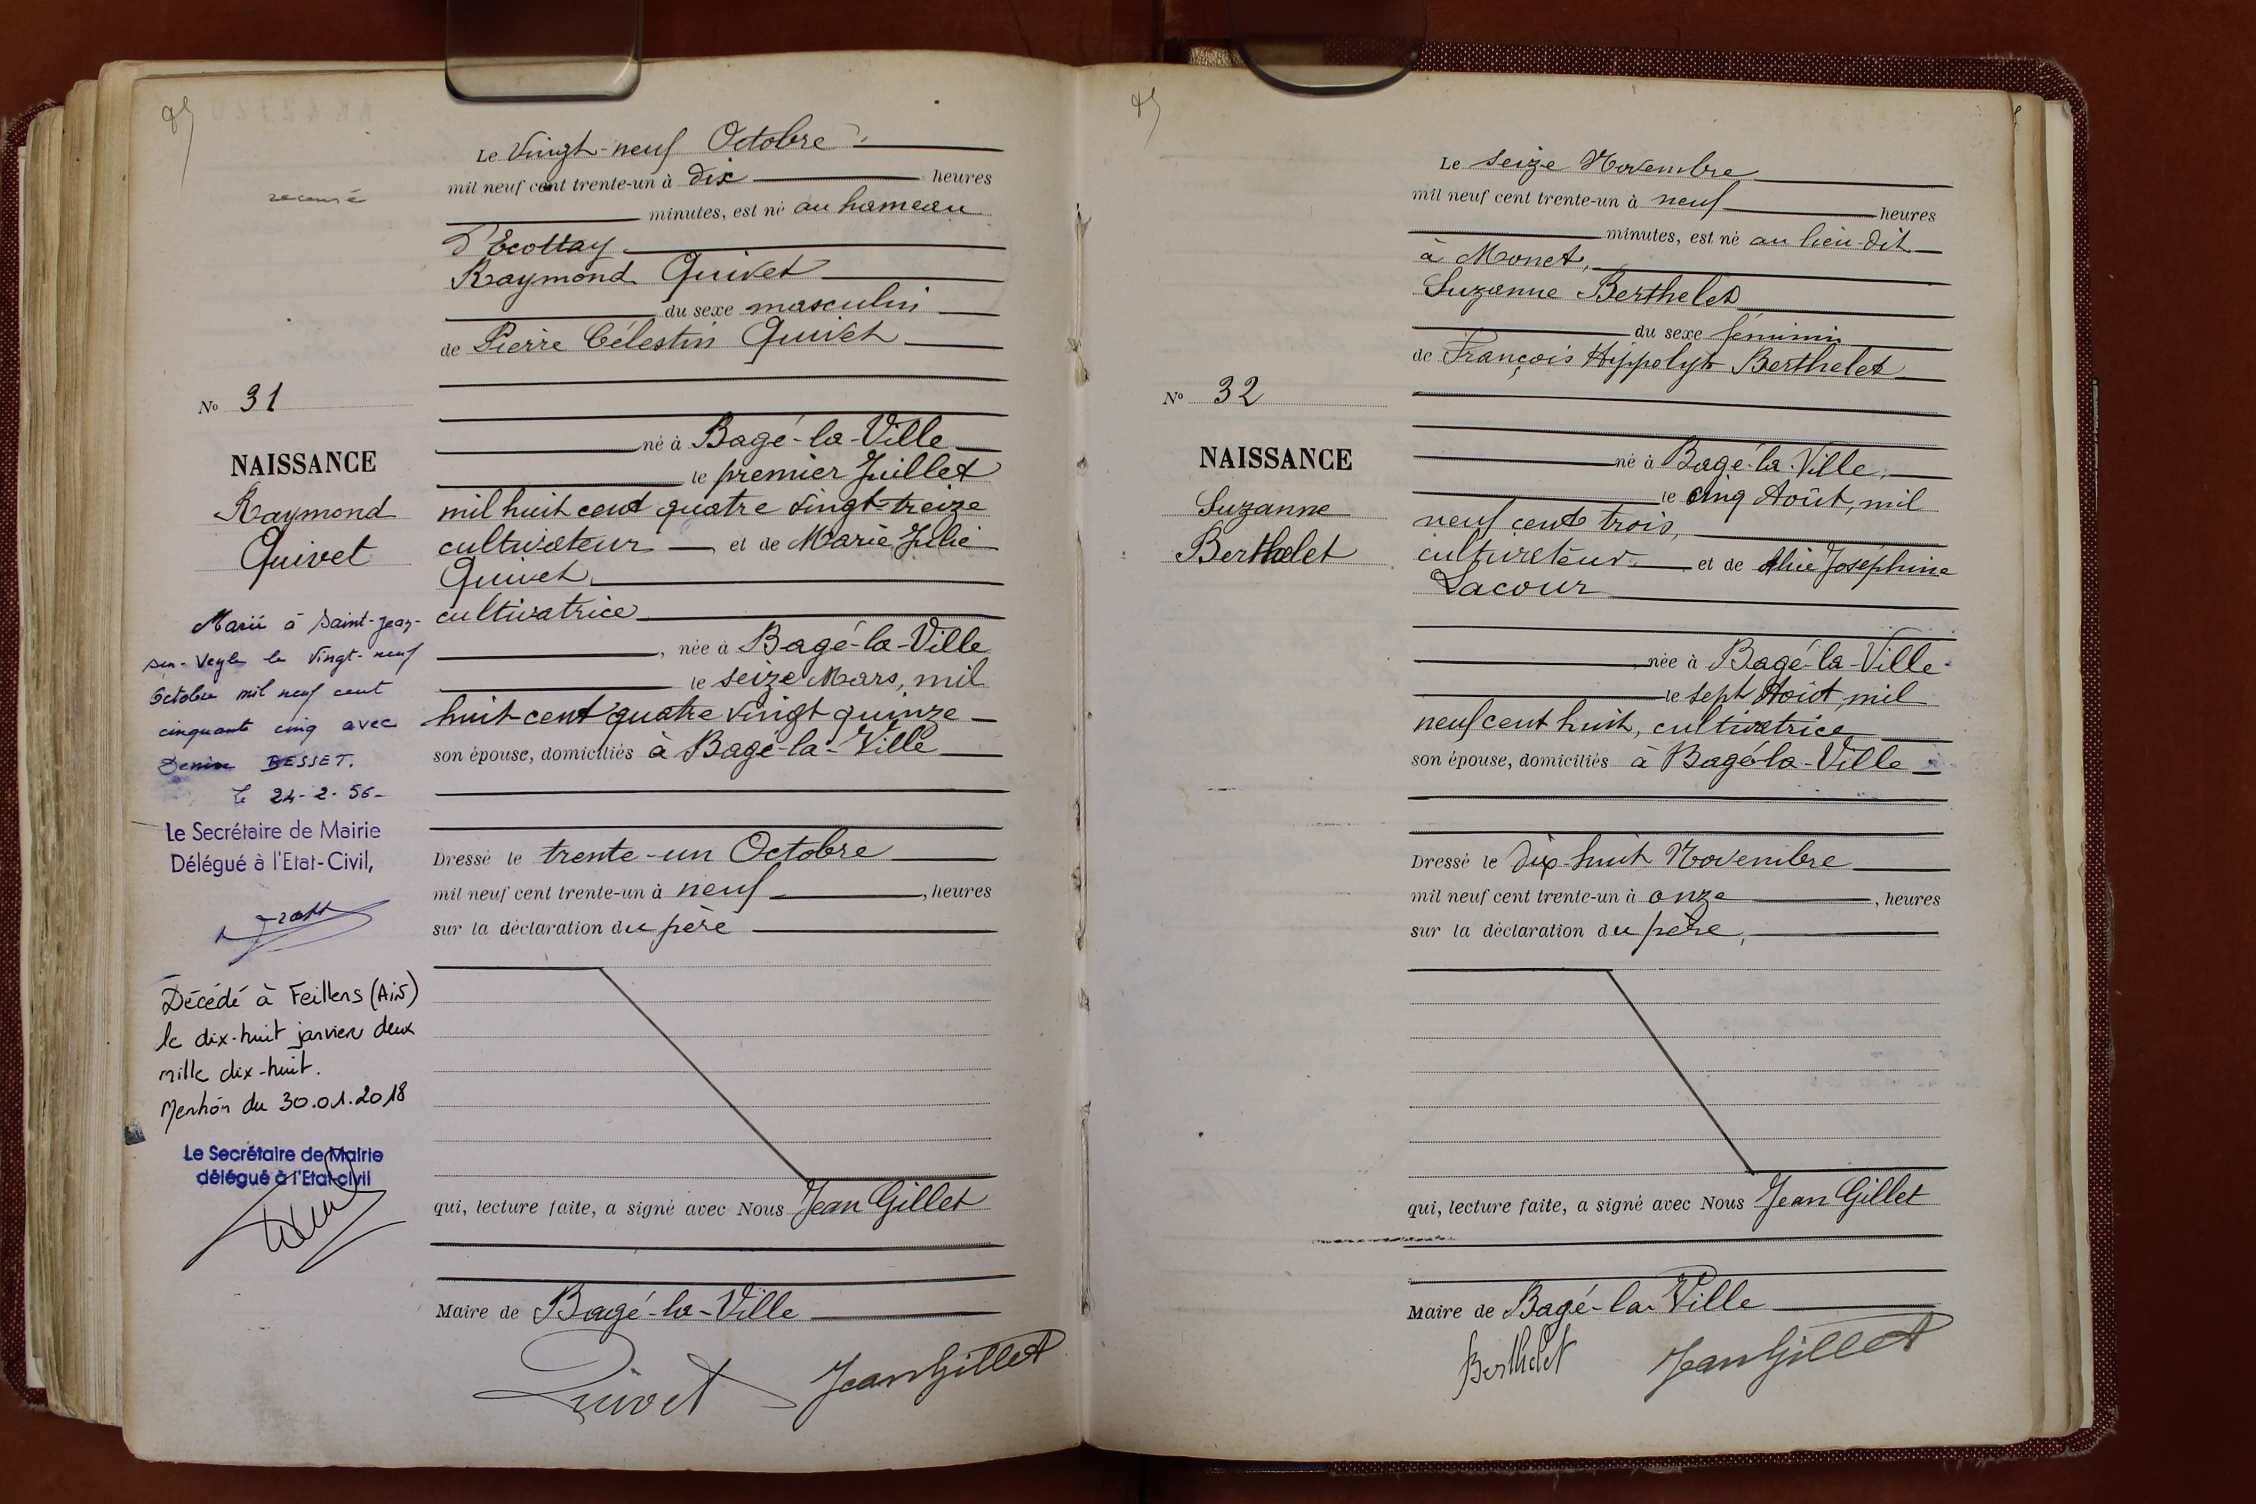 Le Vingt-neuf Octobre
mil neuf cent trente-un à dix heures
recensé
minutes, est né au hameau
d'Ecottay
Raymond Quivet
du sexe masculin
de Pierre Célestin Quivet
N° 31
né à Bagé-la-Ville
NAISSANCE
le premier Juillet
Raymond
mil huit cent quatre vingt-treize
Quivet
cultivateur et de Marie Julie
Quivet
cultivatrice
Marié à Saint-Jean-
sur-Veyle le vingt-neuf
Octobre mil neuf cent
cinquante cinq avec
Denise BESSET.
le 24-2-56-
Le Secrétaire de Mairie
Délégué à l'Etat-Civil,
née à Bagé-la-Ville
le seize Mars, mil
huit-cent quatre vingt quinze
son épouse, domiciliés à Bagé-la-Ville
Dressé le trente-un Octobre
mil neuf cent trente-un à neuf, heures
sur la déclaration du père
Décédé à Feillens (Ain)
le dix-huit janvier deux
mille dix-huit.
Mention du 30.01.2018
Le Secrétaire de Mairie
délégué à l'Etat-civil
qui, lecture faite, a signé avec Nous Jean Gillet
Maire de Bagé-la-Ville
Quivet Jean Gillet
Le seize Novembre
mil neuf cent trente-un à neuf heures
minutes, est né au lieu-dit
à Monet,
Suzanne Berthelet
du sexe féminin
de François Hippolyte Berthelet
N° 32
né à Bagé-la-Ville,
NAISSANCE
le cinq Août, mil
Suzanne
neuf cent trois,
Berthelet
cultivateur et de Alice Joséphine
Lacour
née à Bagé-la-Ville
le sept Août mil
neuf cent huit, cultivatrice
son épouse, domiciliés à Bagé-la-Ville
Dressé le dix-huit Novembre
mil neuf cent trente-un à onze, heures
sur la déclaration du père,
qui, lecture faite, a signé avec Nous Jean Gillet
Maire de Bagé-la-Ville
Berthelet Jean Gillet